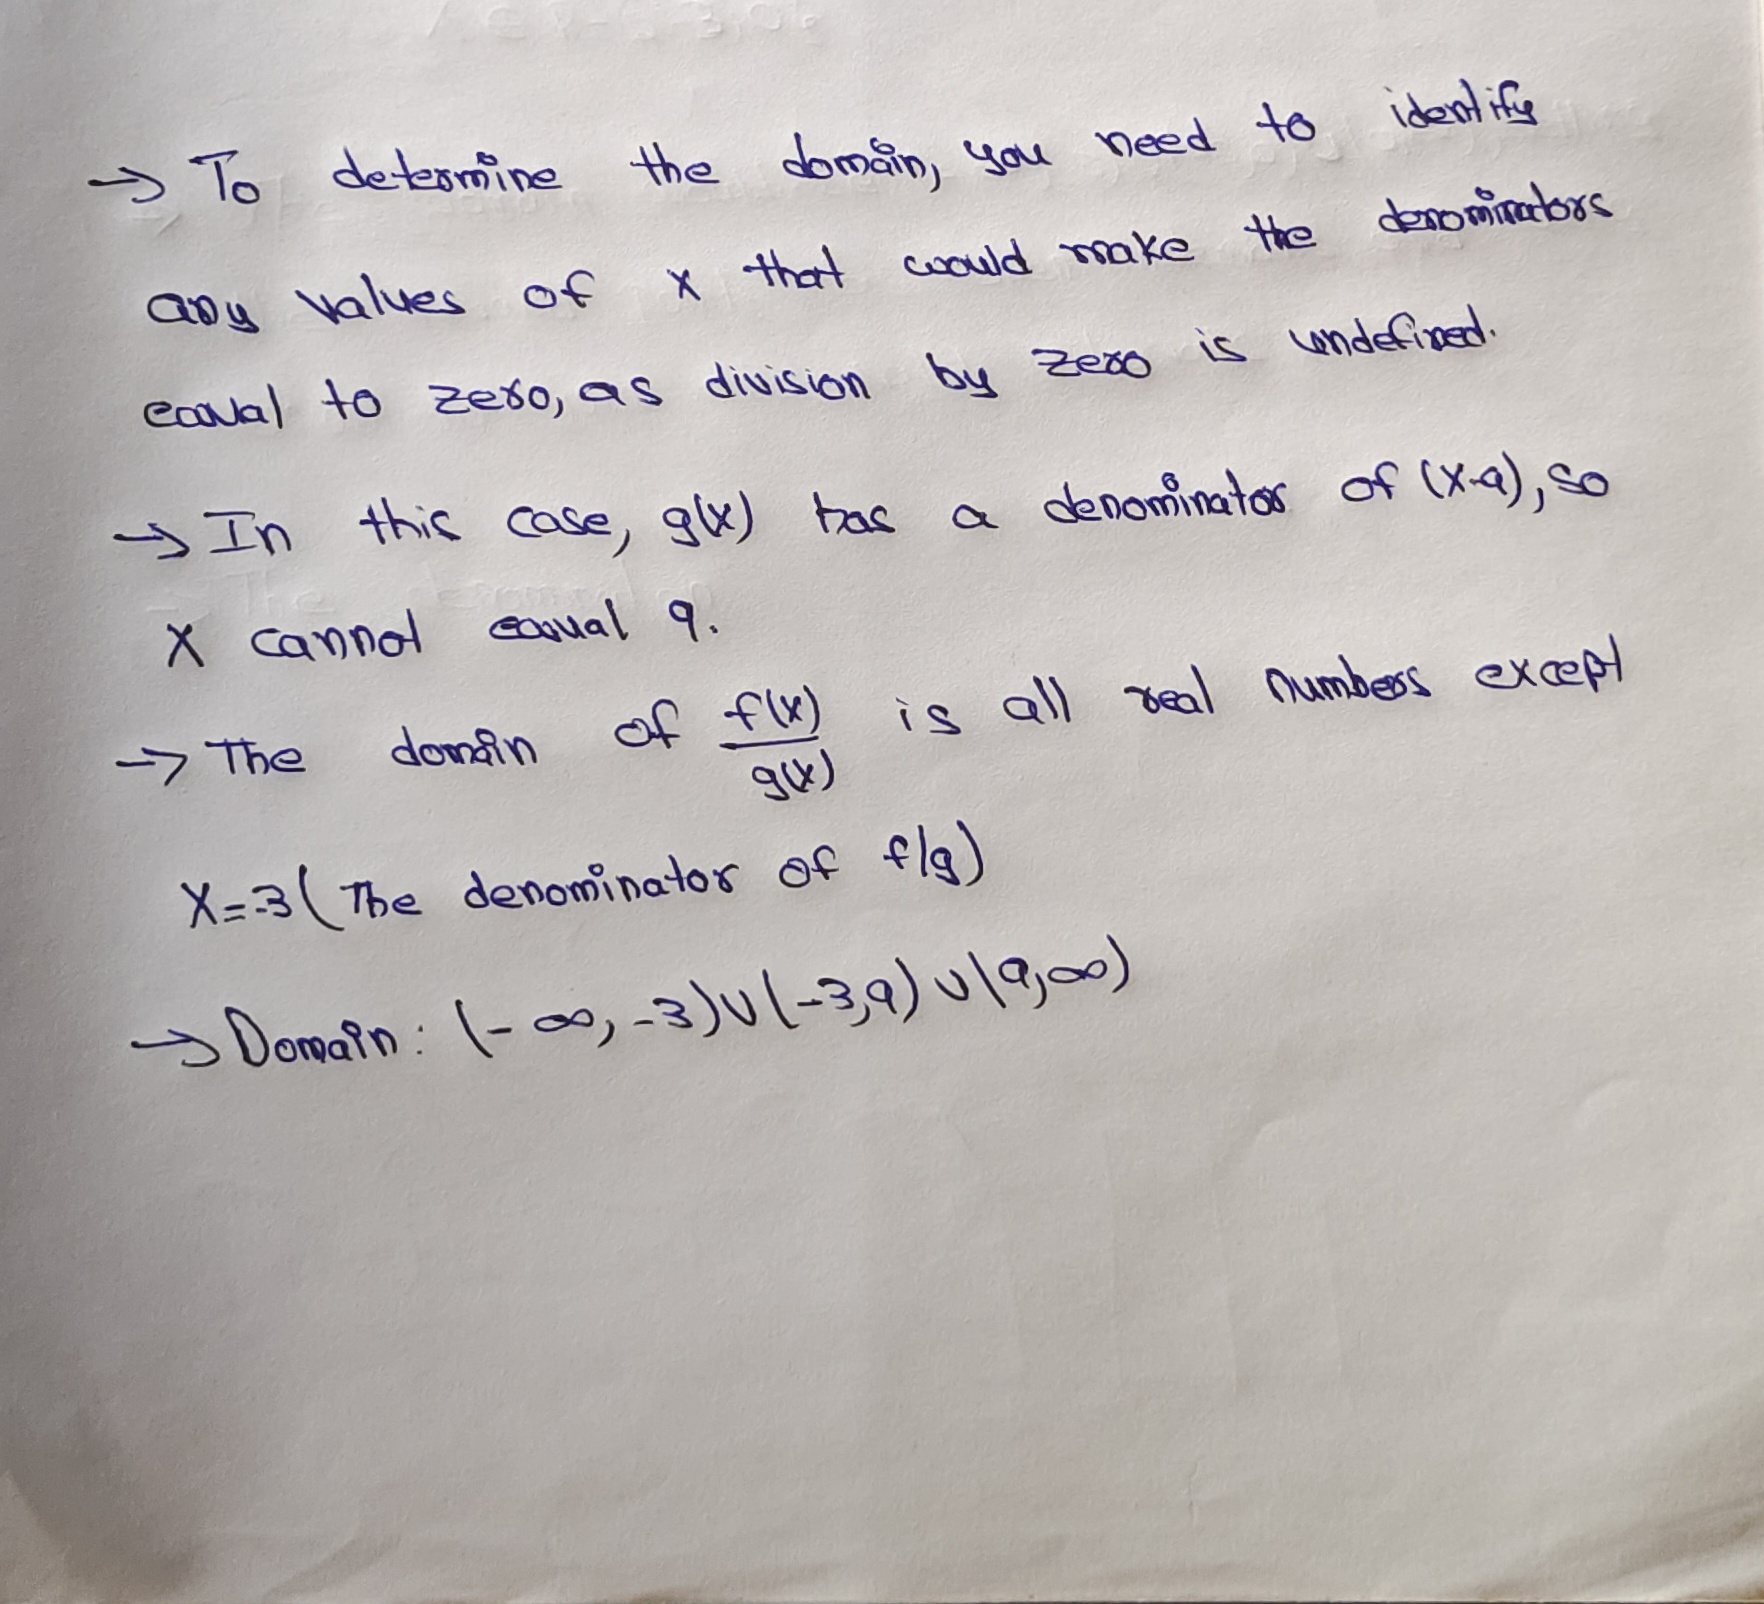 → To determine the domain, you need to identify
any values of x that would make the denominators
equal to zero, as division by zero is undefined.
→ In this case, g(x) has a denominator of (x-9), so
x cannot equal 9.
→ The domain of f(x)/g(x) is all real numbers except
x=-3 (The denominator of f/g)
→ Domain: (-∞, -3)∪(-3,9)∪(9,∞)